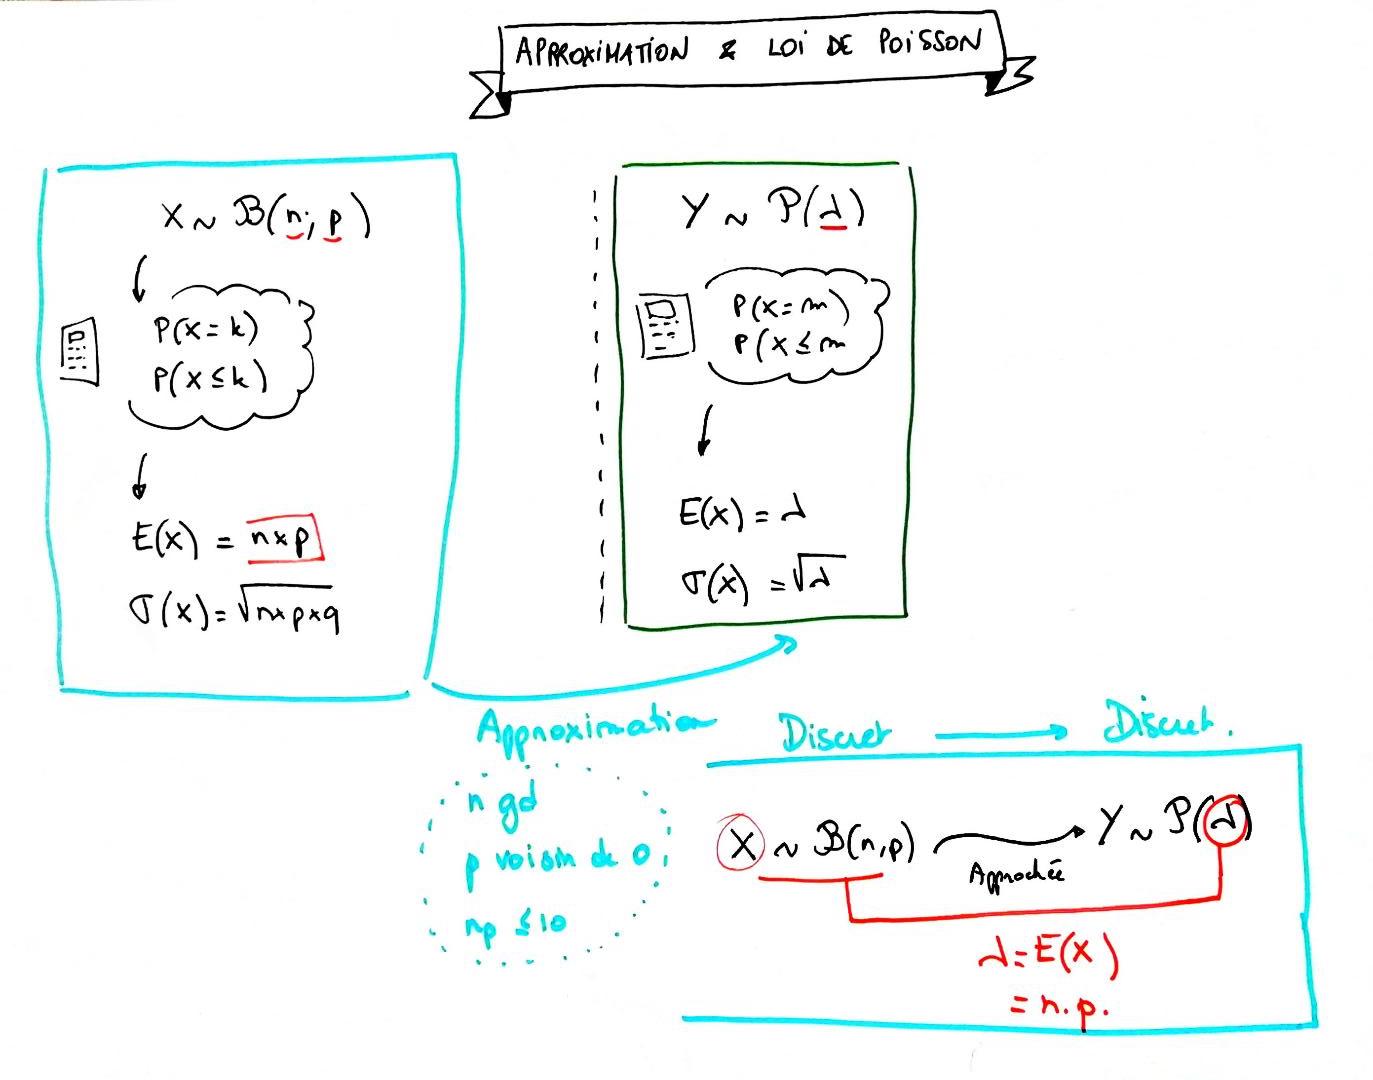 APPROXIMATION & LOI DE POISSON
X ~ B(n; p)
P(X = k)
P(X ≤ k)
E(X) = n×p
σ(X) = √n×p×q
Y ~ P(λ)
P(X = m)
P(X ≤ m
E(X) = λ
σ(X) = √λ
Approximation
n gd
p voisin de 0,
np ≤ 10
Discret → Discret.
X ~ B(n,p) → Y ~ P(λ)
Approchée
λ = E(X)
= n.p.